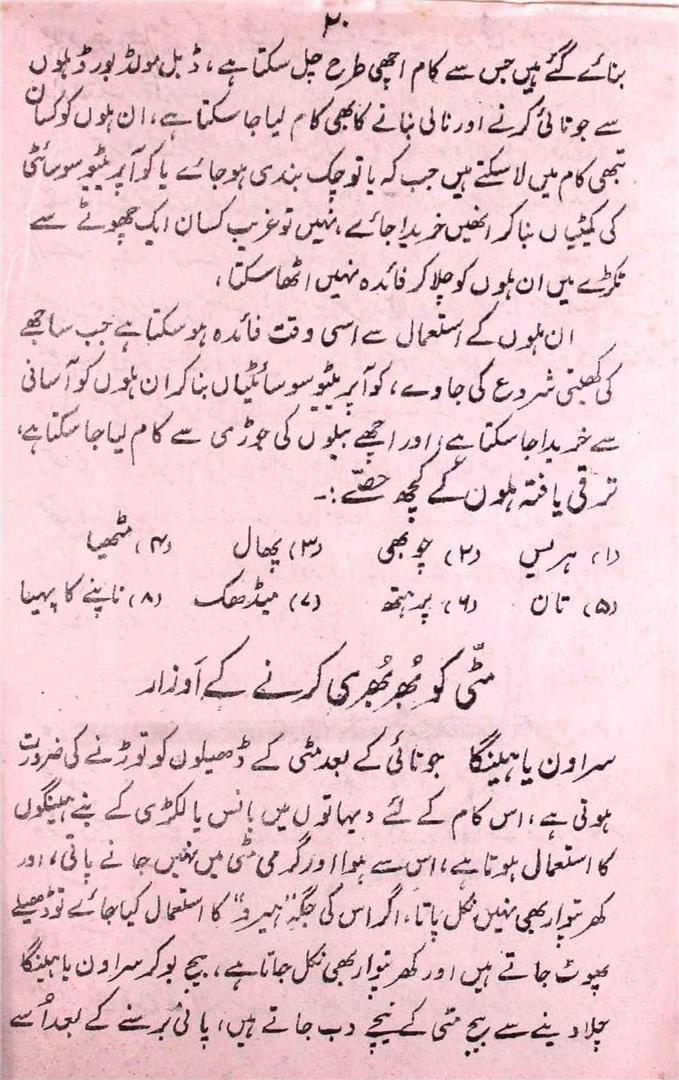 ۲۰
بنائے گئے ہیں جس سے کام اچھی طرح چل سکتا ہے، ڈبل مولڈ بورڈ ہلوں
سے جوتائی کرنے اور نالی بنانے کا بھی کام لیا جا سکتا ہے، ان ہلوں کو کسان
تبھی کام میں لا سکتے ہیں جب کہ یا تو چک بندی ہو جائے یا کوآپریٹیو سوسائٹی
کی کمیٹیاں بنا کر انھیں خریدا جائے، نہیں تو غریب کسان ایک چھوٹے سے
ٹکڑے میں ان ہلوں کو چلا کر فائدہ نہیں اٹھا سکتا،
ان ہلوں کے استعمال سے اسی وقت فائدہ ہو سکتا ہے جب ساجھے
کی کھیتی شروع کی جاوے، کوآپریٹیو سوسائٹیاں بنا کر ان ہلوں کو آسانی
سے خریدا جا سکتا ہے، اور اچھے بیلوں کی جوڑی سے کام لیا جا سکتا ہے،
ترقی یافتہ ہلوں کے کچھ حصّے :۔
(۱) ہریس (۲) چوبھی (۳) پھال (۴) مٹھیا
(۵) تان (۶) پرہتھ (۷) میڈھک (۸) ناپنے کا پہیا
مٹّی کو بُھربُھری کرنے کے اَوزار
سراون یا ہینگا جوتائی کے بعد مٹی کے ڈھیلوں کو توڑنے کی ضرورت
ہوتی ہے، اس کام کے لئے دیہاتوں میں بانس یا لکڑی کے بنے ہینگوں
کا استعمال ہوتا ہے، اس سے ہوا اور گرمی مٹی میں نہیں جانے پاتی، اور
کھر پتوار بھی نہیں نکل پاتا، اگر اس کی جگہ "ہیرو" کا استعمال کیا جائے تو ڈھیلے
پھوٹ جاتے ہیں اور کھر پتوار بھی نکل جاتا ہے، بیج بو کر سراون یا ہینگا
چلا دینے سے بیج مٹی کے نیچے دب جاتے ہیں، پانی برسنے کے بعد اُسے